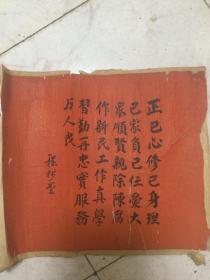 正己心修己身理
己家負己任愛大
眾順賢親除陳舊
作新民工作真學
習勤再忠實服務
片人民